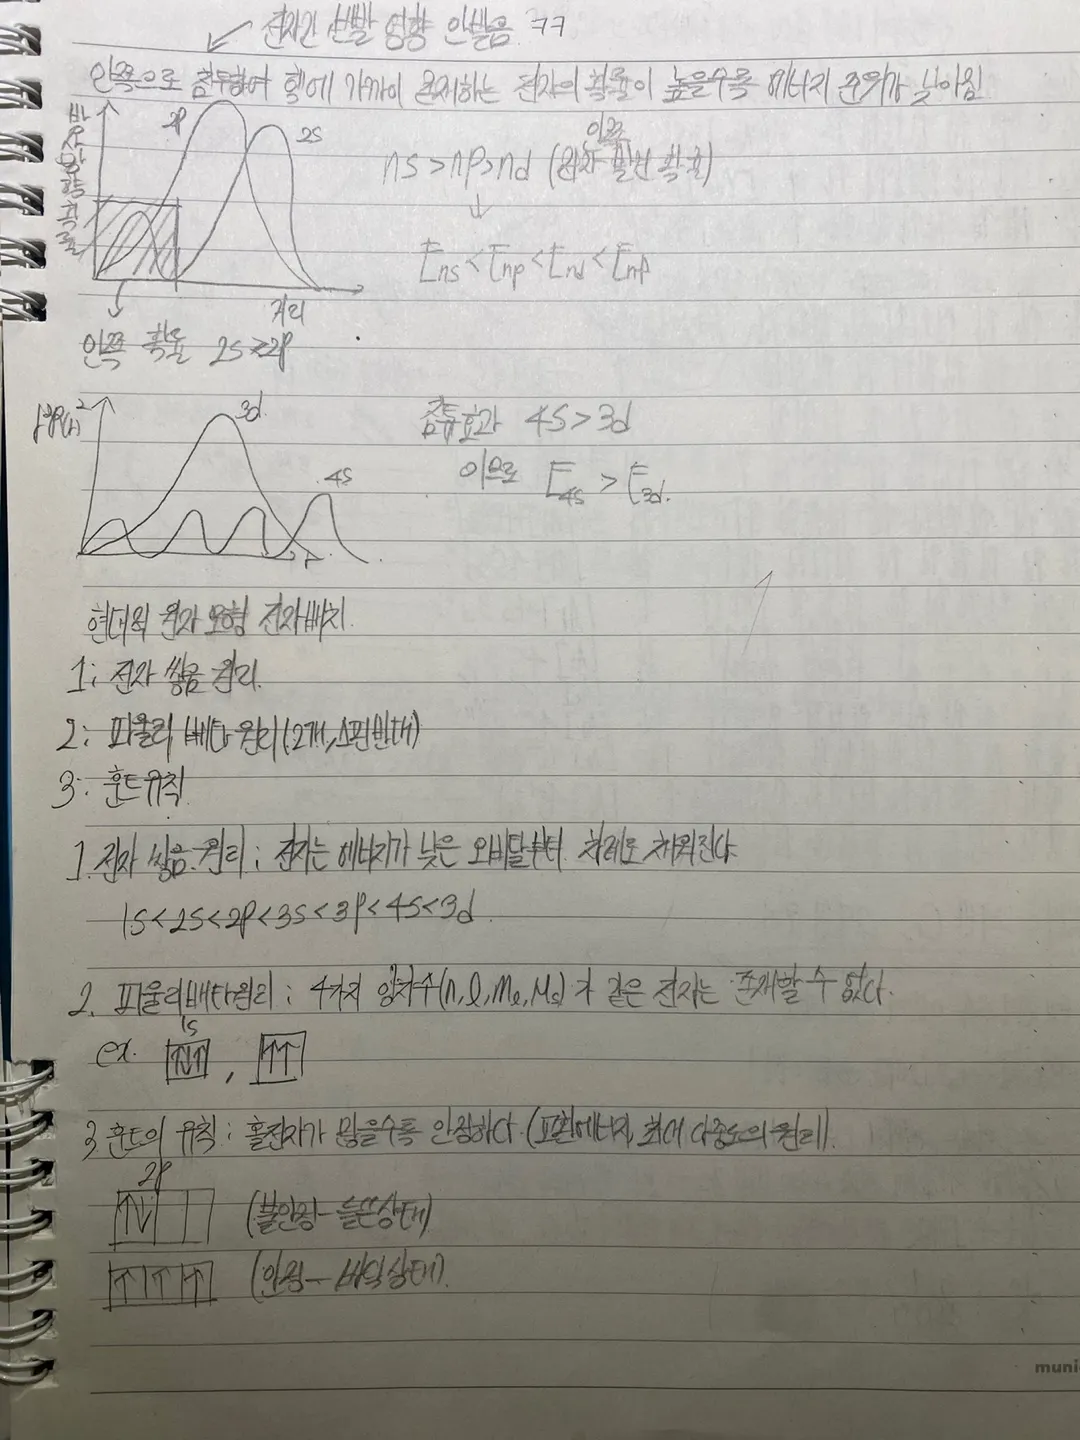 전자간 반발 영향 안받음 ㅋㅋ
안쪽으로 침투하여 핵에 가까이 존재하는 전자의 확률이 높을수록 에너지 준위가 낮아짐
2P
2S
거리
안쪽
ns>np>nd (전자 발견 확률)
↓
Ens < Enp < End < Enp
안쪽 확률 2S>2P
3d
4S
r
침투효과 4S>3d
이므로 E4s > E3d.
현대의 원자 모형 전자배치
1: 전자 쌓음 원리.
2: 파울리 배타원리(2개, 스핀반대)
3: 훈트규칙
1. 전자 쌓음 원리 : 전자는 에너지가 낮은 오비탈부터 차례로 채워진다.
1S<2S<2P<3S<3P<4S<3d
2. 파울리배타원리 : 4가지 양자수(n, l, ml, ms)가 같은 전자는 존재할 수 없다.
1s
ex. ↑↓↑ , ↑↑
3. 훈트의 규칙 : 홀전자가 많을수록 안정하다. (교환에너지, 최대 다중도의 원리).
2P
↑↓ (불안정-들뜬상태)
↑ ↑ ↑ (안정-바닥상태).
muni